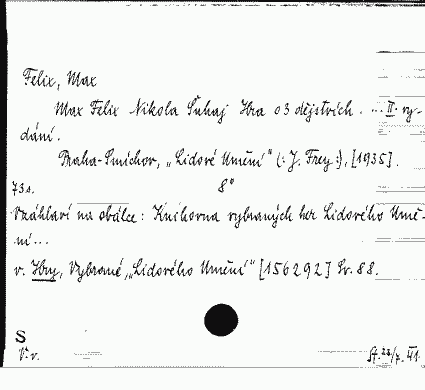 Felix, Max
Max Felix Nikola Šuhaj Hra o 3 dějstvích. ... II. vy-
dání.
Praha-Smíchov, „Lidové Umění" (: J. Frey :), [1935].
73 s. 8°
V záhlaví na obálce: Knihovna vybraných her Lidového Umě-
ní...
v. Hry, Vybrané, „Lidového Umění" [156292] Sv. 88.
S
V. v.
St. 23/7. 41.